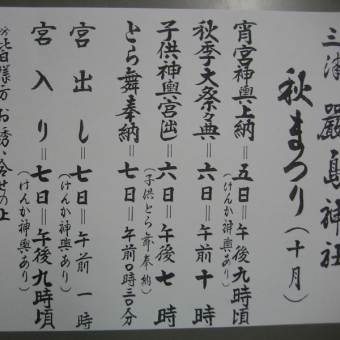 三津 嚴島神社
秋まつり(十月)
宵宮神輿上納=五日=午後九時頃
(けんか神輿あり)
秋季大祭々典=六日=午前十時
子供神輿宮出=六日=午後七時
(子供とら舞奉納)
とら舞奉納=七日=午前0時三0分
宮出し=七日=午前一時
(けんか神輿あり)
宮入り=七日=午後九時頃
(けんか神輿あり)
※皆様方お誘い合せの上